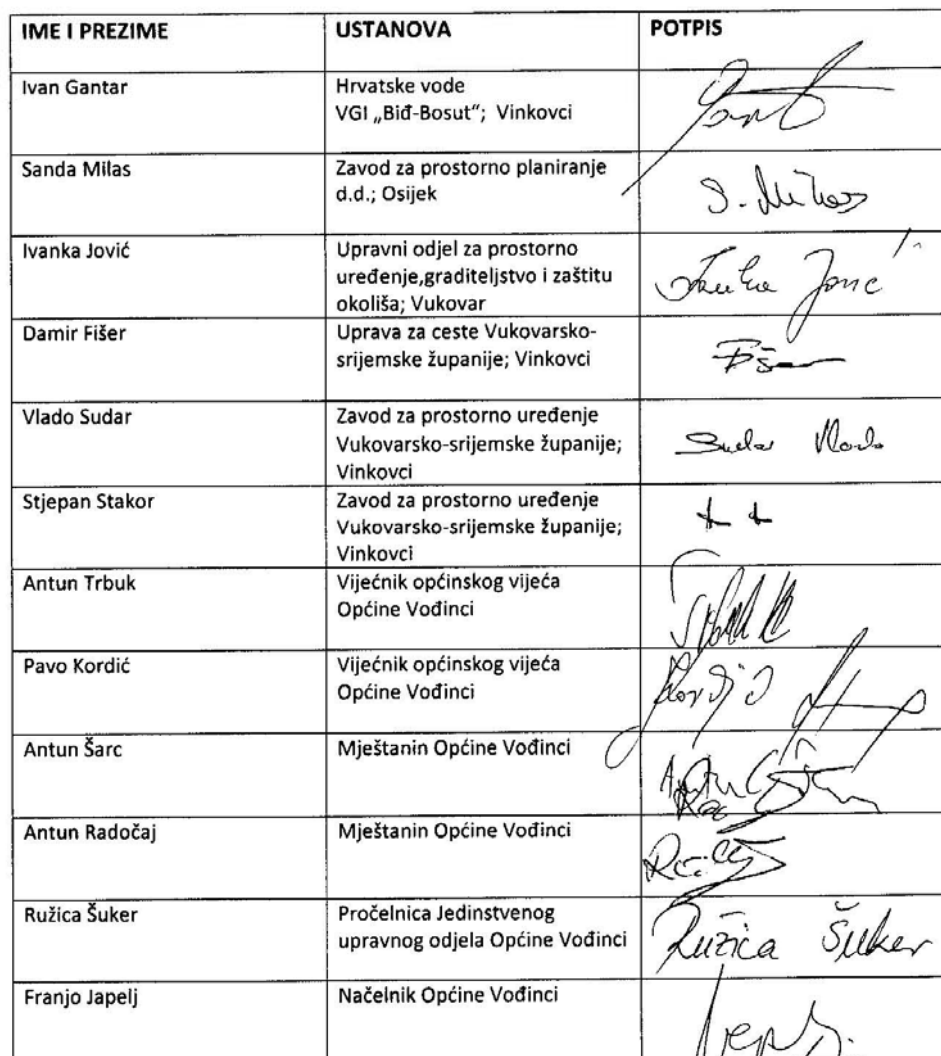 IME I PREZIME USTANOVA POTPIS
Ivan Gantar Hrvatske vode
VGI „Biđ-Bosut“; Vinkovci
Sanda Milas Zavod za prostorno planiranje
d.d.; Osijek
S. Milas
Ivanka Jović Upravni odjel za prostorno
uređenje,graditeljstvo i zaštitu
okoliša; Vukovar
Ivanka Jović
Damir Fišer Uprava za ceste Vukovarsko-
srijemske županije; Vinkovci
Vlado Sudar Zavod za prostorno uređenje
Vukovarsko-srijemske županije;
Vinkovci
Sudar Vlado
Stjepan Stakor Zavod za prostorno uređenje
Vukovarsko-srijemske županije;
Vinkovci
Antun Trbuk Vijećnik općinskog vijeća
Općine Vođinci
Pavo Kordić Vijećnik općinskog vijeća
Općine Vođinci
Antun Šarc Mještanin Općine Vođinci
Antun Radočaj Mještanin Općine Vođinci
Ružica Šuker Pročelnica Jedinstvenog
upravnog odjela Općine Vođinci
Ružica Šuker
Franjo Japelj Načelnik Općine Vođinci